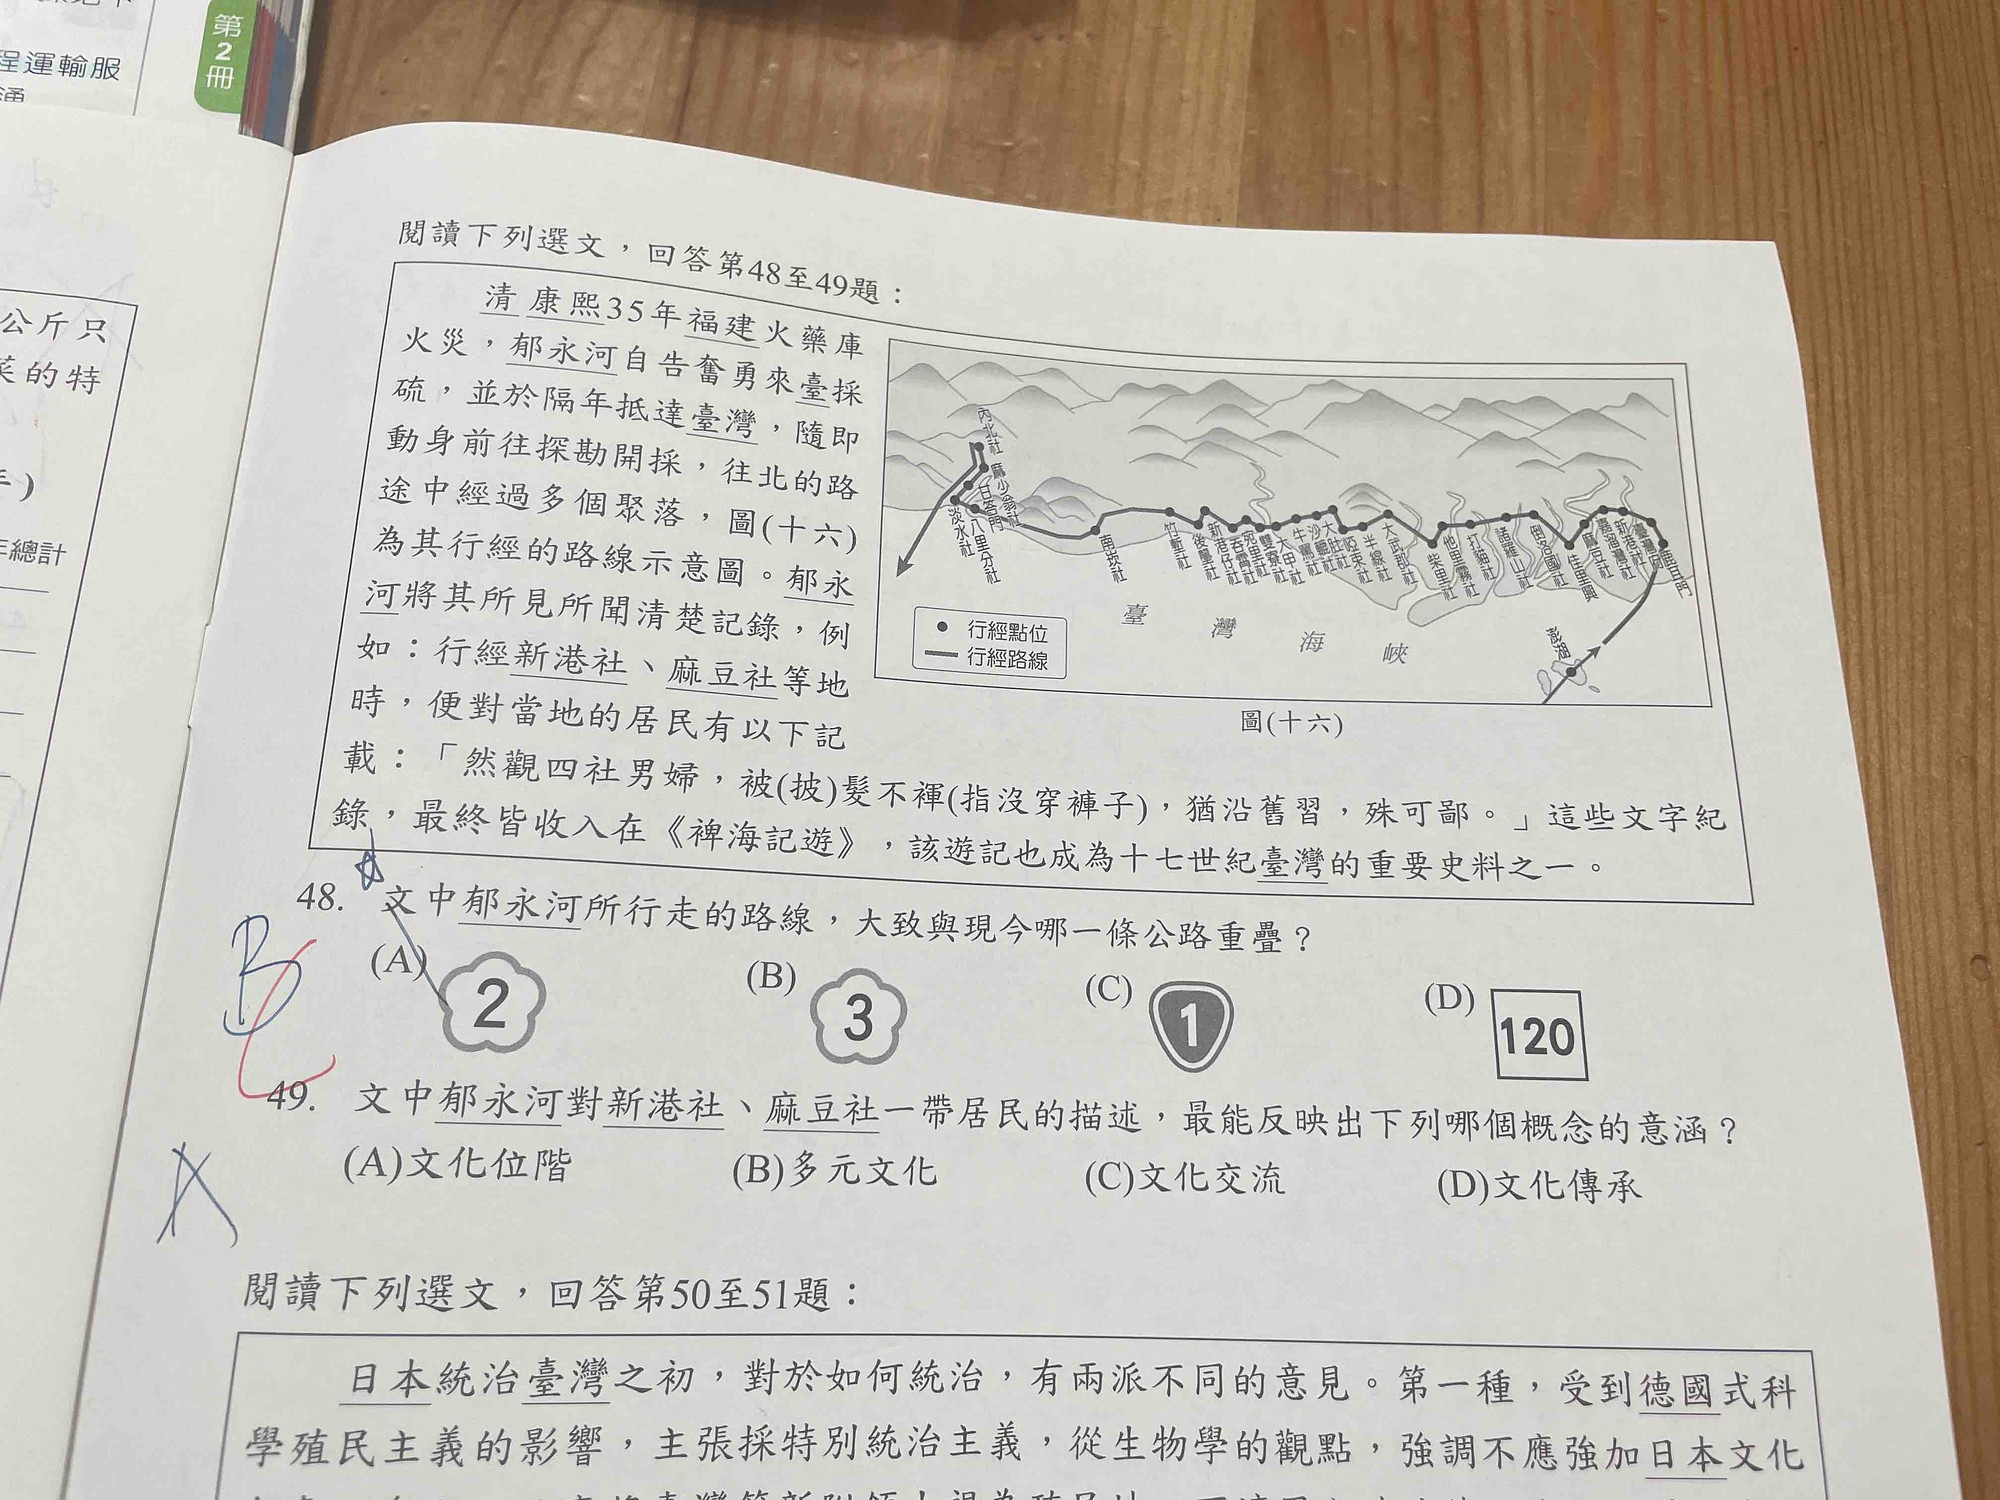 第2冊
程運輸服
公斤只
菜的特
年總計
閱讀下列選文，回答第48至49題：
清康熙35年福建火藥庫
火災，郁永河自告奮勇來臺採
硫，並於隔年抵達臺灣，隨即
動身前往探勘開採，往北的路
途中經過多個聚落，圖(十六)
為其行經的路線示意圖。郁永
河將其所見所聞清楚記錄，例
如：行經新港社、麻豆社等地
時，便對當地的居民有以下記
載：「然觀四社男婦，被(披)髮不褌(指沒穿褲子)，猶沿舊習，殊可鄙。」這些文字紀
錄，最終皆收入在《裨海記遊》，該遊記也成為十七世紀臺灣的重要史料之一。
內北社
麻少翁社
甘答門
淡水社
八里分社
南崁社
竹塹社
後壠社
新港仔社
吞霄社
宛里社
雙寮社
大甲社
牛罵社
沙轆社
大肚社
啞束社
半線社
大武郡社
柴里社
他里霧社
打貓社
諸羅山社
倒咯國社
佳里興
麻豆社
新港社
臺灣府
鹿耳門
澎湖
臺灣海峽
行經點位
行經路線
圖(十六)
48. 文中郁永河所行走的路線，大致與現今哪一條公路重疊？
(A) 2 (B) 3 (C) 1 (D) 120
B
C
49. 文中郁永河對新港社、麻豆社一帶居民的描述，最能反映出下列哪個概念的意涵？
(A)文化位階 (B)多元文化 (C)文化交流 (D)文化傳承
A
閱讀下列選文，回答第50至51題：
日本統治臺灣之初，對於如何統治，有兩派不同的意見。第一種，受到德國式科
學殖民主義的影響，主張採特別統治主義，從生物學的觀點，強調不應強加日本文化